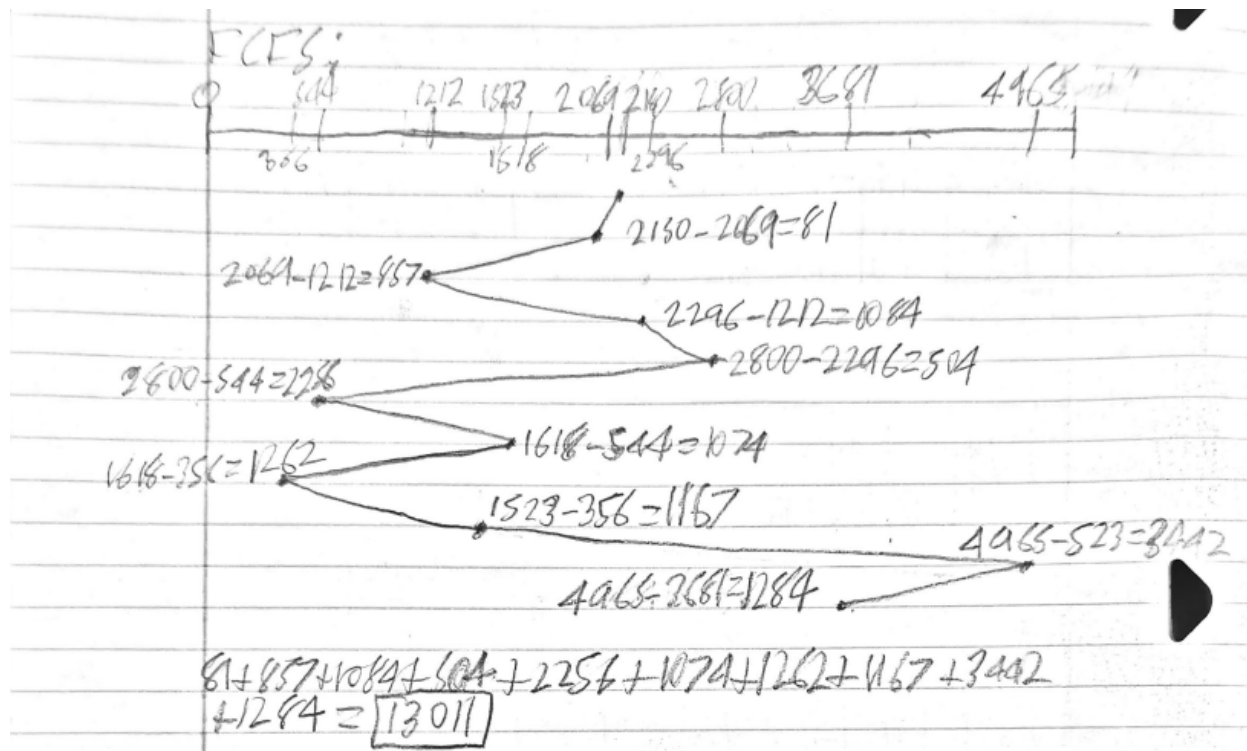 FCFS:
0 544 1212 1523 2069 2150 2800 3681 4965
356 1618 2296
2150-2069=81
2069-1212=857
2296-1212=1084
2800-2296=504
2800-544=2256
1618-544=1074
1618-356=1262
1523-356=1167
4965-523=3442
4965-3681=1284
81+857+1084+504+2256+1074+1262+1167+3442
+1284=13011